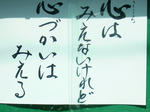 心は
みえないけれど
心づかいは
みえる